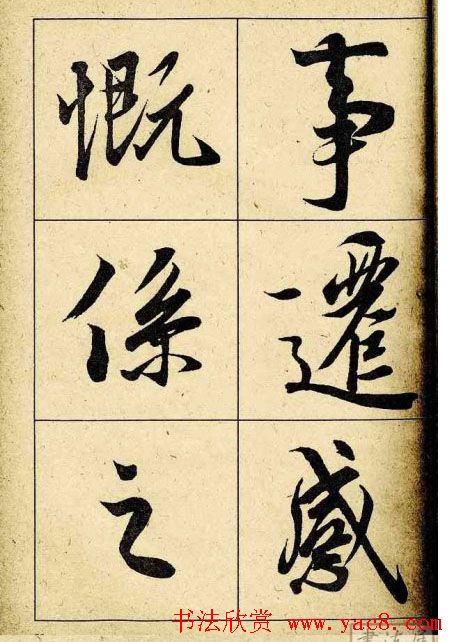 事遷感
慨係之
书法欣赏 www.yac8.com